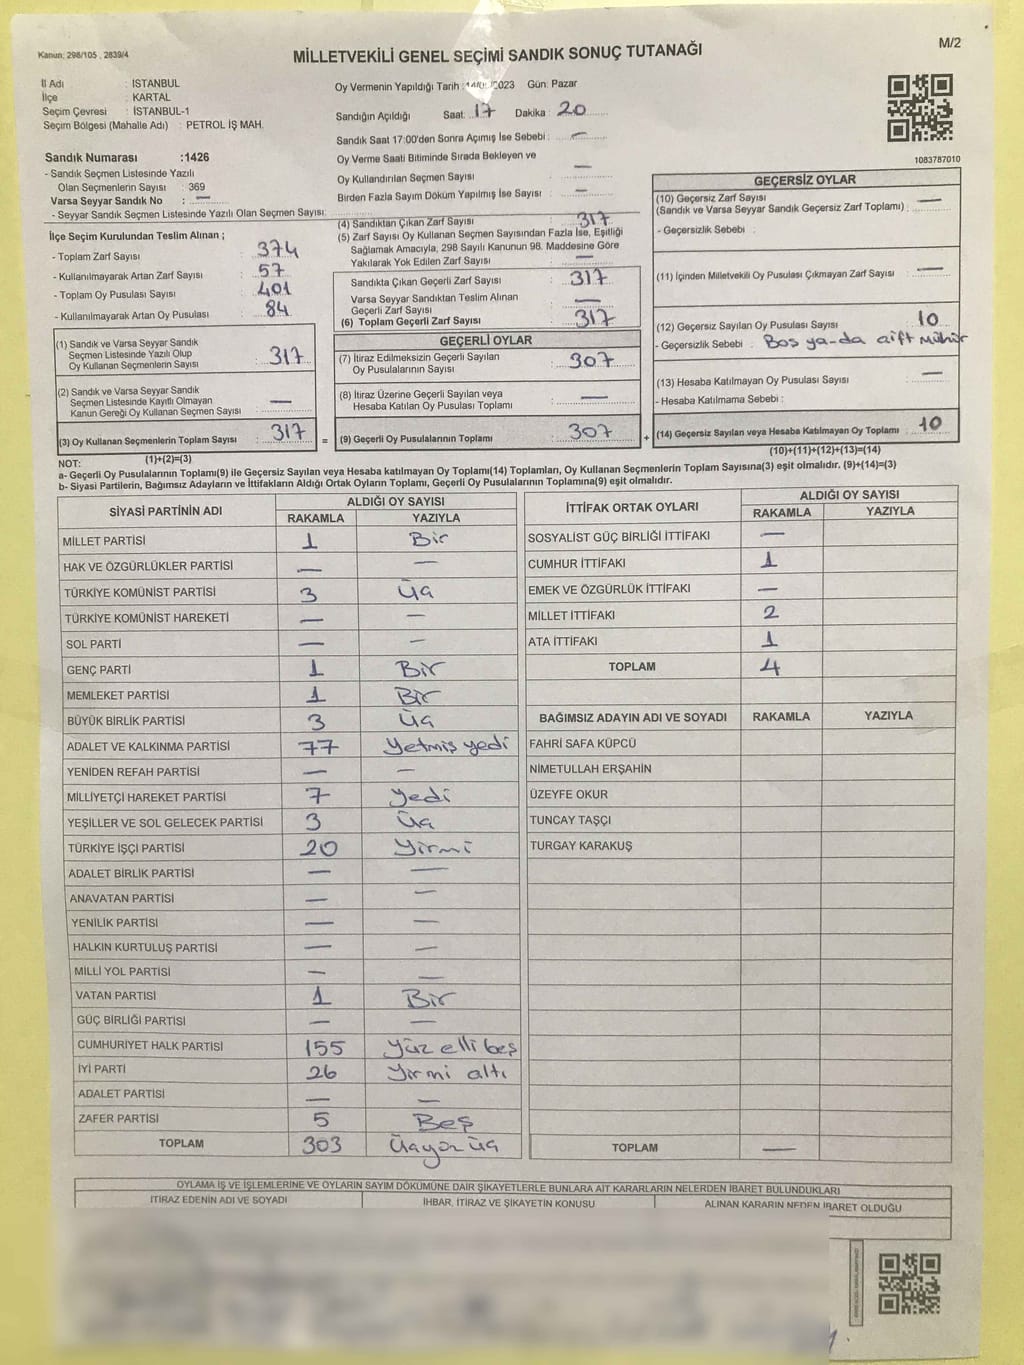 Kanun: 298/105 , 2839/4
MİLLETVEKİLİ GENEL SEÇİMİ SANDIK SONUÇ TUTANAĞI
M/2
İl Adı : İSTANBUL
İlçe : KARTAL
Seçim Çevresi : İSTANBUL-1
Seçim Bölgesi (Mahalle Adı) : PETROL İŞ MAH.
Sandık Numarası :1426
- Sandık Seçmen Listesinde Yazılı
Olan Seçmenlerin Sayısı : 369
Varsa Seyyar Sandık No : —
- Seyyar Sandık Seçmen Listesinde Yazılı Olan Seçmen Sayısı:
Oy Vermenin Yapıldığı Tarih : 2023 Gün: Pazar
Sandığın Açıldığı Saat: 17 Dakika : 20
Sandık Saat 17:00'den Sonra Açımış İse Sebebi : —
Oy Verme Saati Bitiminde Sırada Bekleyen ve
Oy Kullandırılan Seçmen Sayısı —
Birden Fazla Sayım Döküm Yapılmış İse Sayısı : —
1083787010
İlçe Seçim Kurulundan Teslim Alınan ;
- Toplam Zarf Sayısı : 374
- Kullanılmayarak Artan Zarf Sayısı : 57
- Toplam Oy Pusulası Sayısı : 401
- Kullanılmayarak Artan Oy Pusulası : 84
(1) Sandık ve Varsa Seyyar Sandık
Seçmen Listesinde Yazılı Olup
Oy Kullanan Seçmenlerin Sayısı : 317
(2) Sandık ve Varsa Seyyar Sandık
Seçmen Listesinde Kayıtlı Olmayan
Kanun Gereği Oy Kullanan Seçmen Sayısı : —
(3) Oy Kullanan Seçmenlerin Toplam Sayısı : 317
(1)+(2)=(3)
(4) Sandıktan Çıkan Zarf Sayısı : 317
(5) Zarf Sayısı Oy Kullanan Seçmen Sayısından Fazla İse, Eşitliği
Sağlamak Amacıyla, 298 Sayılı Kanunun 98. Maddesine Göre
Yakılarak Yok Edilen Zarf Sayısı : —
Sandıkta Çıkan Geçerli Zarf Sayısı : 317
Varsa Seyyar Sandıktan Teslim Alınan
Geçerli Zarf Sayısı : —
(6) Toplam Geçerli Zarf Sayısı : 317
GEÇERLİ OYLAR
(7) İtiraz Edilmeksizin Geçerli Sayılan
Oy Pusulalarının Sayısı : 307
(8) İtiraz Üzerine Geçerli Sayılan veya
Hesaba Katılan Oy Pusulası Toplamı : —
= (9) Geçerli Oy Pusulalarının Toplamı : 307 +
GEÇERSİZ OYLAR
(10) Geçersiz Zarf Sayısı
(Sandık ve Varsa Seyyar Sandık Geçersiz Zarf Toplamı) : —
- Geçersizlik Sebebi :
(11) İçinden Milletvekili Oy Pusulası Çıkmayan Zarf Sayısı : —
(12) Geçersiz Sayılan Oy Pusulası Sayısı : 10
- Geçersizlik Sebebi : Bos ya-da çift mühür
(13) Hesaba Katılmayan Oy Pusulası Sayısı : —
- Hesaba Katılmama Sebebi :
(14) Geçersiz Sayılan veya Hesaba Katılmayan Oy Toplamı : 10
(10)+(11)+(12)+(13)=(14)
NOT:
a- Geçerli Oy Pusulalarının Toplamı(9) ile Geçersiz Sayılan veya Hesaba katılmayan Oy Toplamı(14) Toplamları, Oy Kullanan Seçmenlerin Toplam Sayısına(3) eşit olmalıdır. (9)+(14)=(3)
b- Siyasi Partilerin, Bağımsız Adayların ve İttifakların Aldığı Ortak Oyların Toplamı, Geçerli Oy Pusulalarının Toplamına(9) eşit olmalıdır.
SİYASİ PARTİNİN ADI ALDIĞI OY SAYISI
RAKAMLA YAZIYLA
MİLLET PARTİSİ 1 Bir
HAK VE ÖZGÜRLÜKLER PARTİSİ — —
TÜRKİYE KOMÜNİST PARTİSİ 3 Üç
TÜRKİYE KOMÜNİST HAREKETİ — —
SOL PARTİ — —
GENÇ PARTİ 1 Bir
MEMLEKET PARTİSİ 1 Bir
BÜYÜK BİRLİK PARTİSİ 3 Üç
ADALET VE KALKINMA PARTİSİ 77 Yetmiş yedi
YENİDEN REFAH PARTİSİ — —
MİLLİYETÇİ HAREKET PARTİSİ 7 Yedi
YEŞİLLER VE SOL GELECEK PARTİSİ 3 Üç
TÜRKİYE İŞÇİ PARTİSİ 20 Yirmi
ADALET BİRLİK PARTİSİ — —
ANAVATAN PARTİSİ — —
YENİLİK PARTİSİ — —
HALKIN KURTULUŞ PARTİSİ — —
MİLLİ YOL PARTİSİ — —
VATAN PARTİSİ 1 Bir
GÜÇ BİRLİĞİ PARTİSİ — —
CUMHURİYET HALK PARTİSİ 155 Yüz elli beş
İYİ PARTİ 26 Yirmi altı
ADALET PARTİSİ — —
ZAFER PARTİSİ 5 Beş
TOPLAM 303 Üçyüz üç
İTTİFAK ORTAK OYLARI ALDIĞI OY SAYISI
RAKAMLA YAZIYLA
SOSYALİST GÜÇ BİRLİĞİ İTTİFAKI —
CUMHUR İTTİFAKI 1
EMEK VE ÖZGÜRLÜK İTTİFAKI —
MİLLET İTTİFAKI 2
ATA İTTİFAKI 1
TOPLAM 4
BAĞIMSIZ ADAYIN ADI VE SOYADI RAKAMLA YAZIYLA
FAHRİ SAFA KÜPCÜ
NİMETULLAH ERŞAHİN
ÜZEYFE OKUR
TUNCAY TAŞÇI
TURGAY KARAKUŞ
TOPLAM —
OYLAMA İŞ VE İŞLEMLERİNE VE OYLARIN SAYIM DÖKÜMÜNE DAİR ŞİKAYETLERLE BUNLARA AİT KARARLARIN NELERDEN İBARET BULUNDUKLARI
İTİRAZ EDENİN ADI VE SOYADI İHBAR, İTİRAZ VE ŞİKAYETİN KONUSU ALINAN KARARIN NEDEN İBARET OLDUĞU